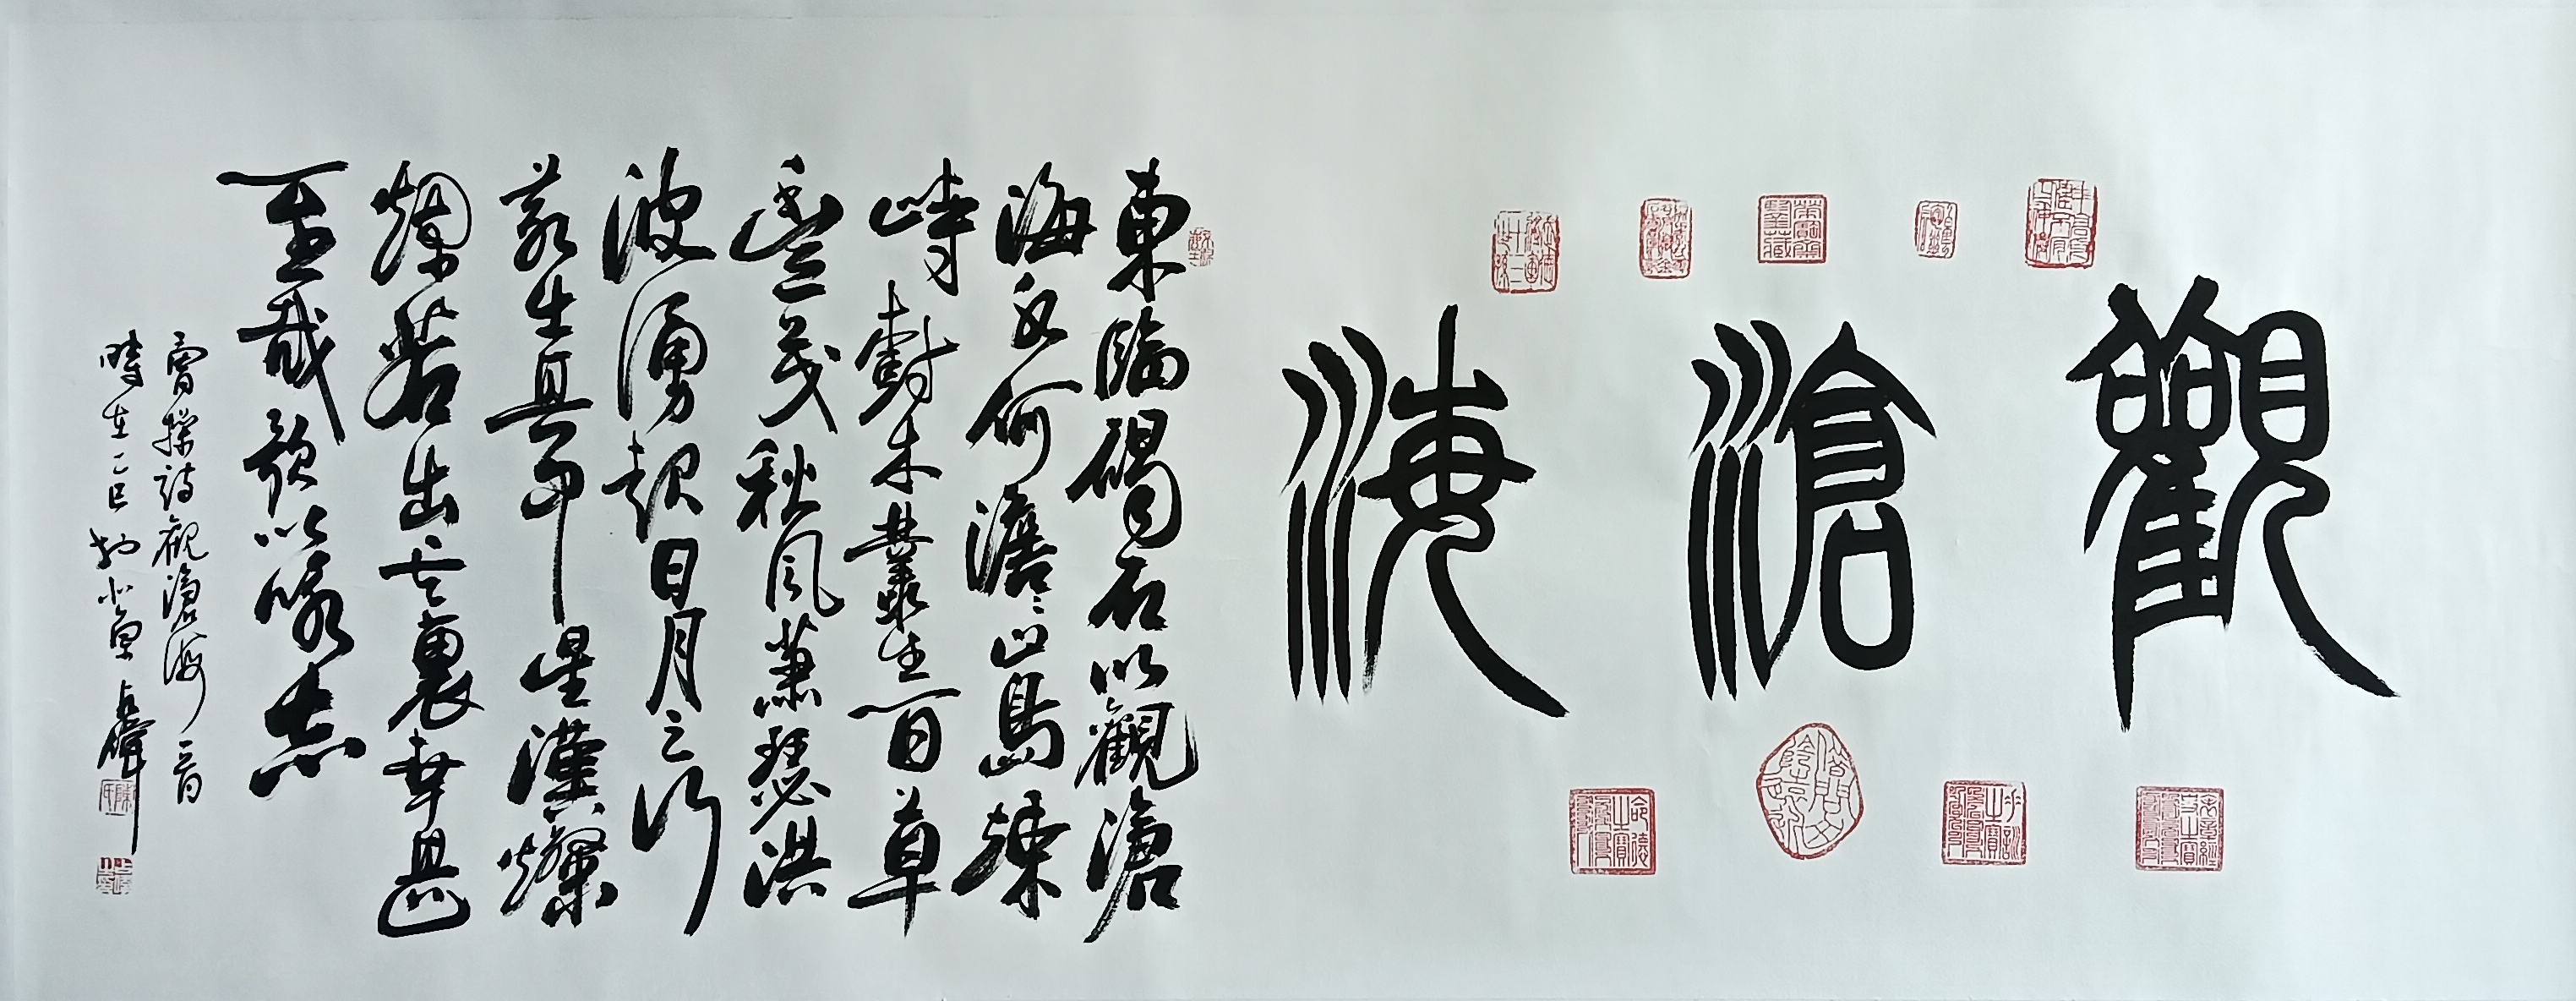 觀滄海
東臨碣石以觀滄
海水何澹〻山島竦
峙樹木叢生百草
豐茂秋風蕭瑟洪
波湧起日月之行
若出其中星漢燦
爛若出其裏幸甚
至哉歌以詠志
曹操詩觀滄海一首
時在乙巳於北京